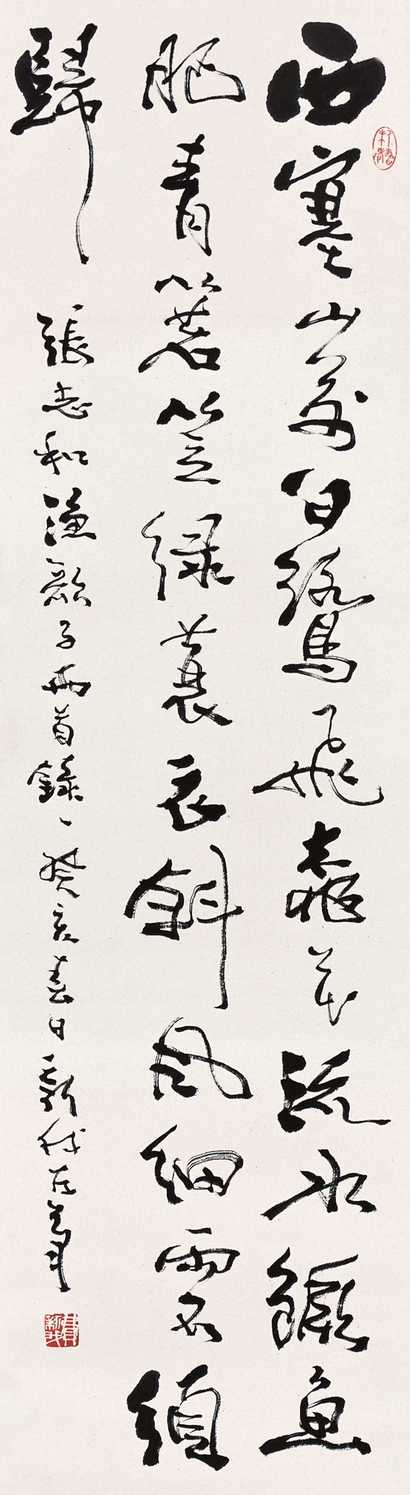 西塞山前白鷺飛桃花流水鱖魚
肥青箬笠緑蓑衣斜風細雨不須
歸
張志和漁歌子兩首錄一癸亥春日新我左筆
費新我